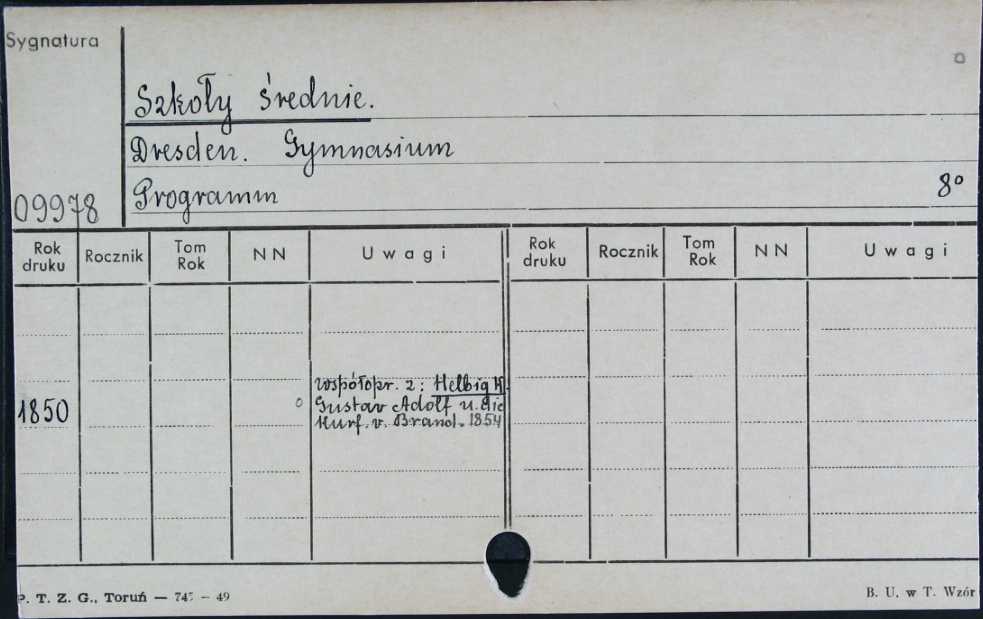 Sygnatura
Szkoły średnie.
Dresden. Gymnasium
Programm 8°
09978
Rok druku Rocznik Tom Rok NN Uwagi Rok druku Rocznik Tom Rok NN Uwagi
1850
współopr. z: Helbig K.
Gustav Adolf u. die
Kurf. v. Brand. 1854
P. T. Z. G., Toruń — 745 — 49
B. U. w T. Wzór